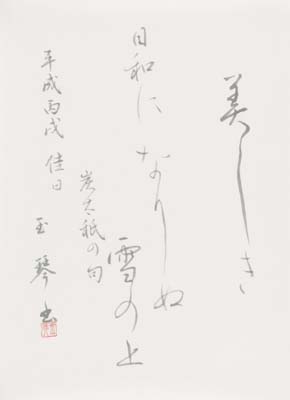 美しき
日和に なりしぬ
雪の上
炭太祇の句
平成丙戌 佳日
玉琴書